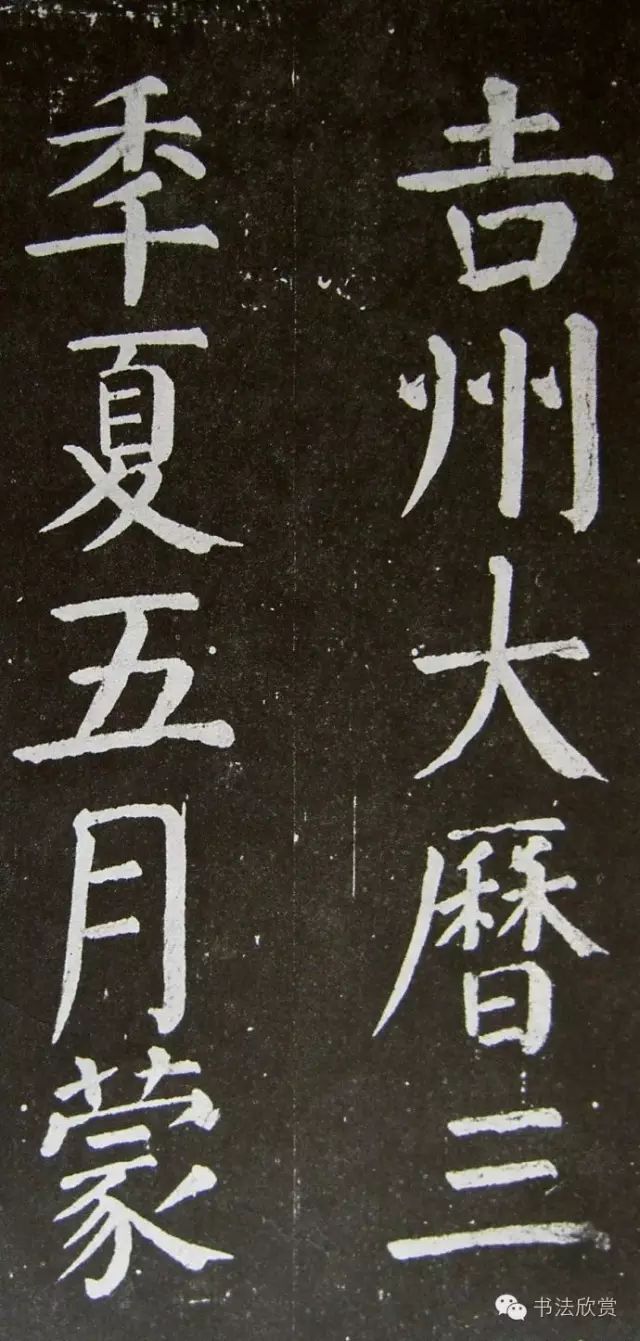 吉州大曆三
季夏五月蒙
书法欣赏